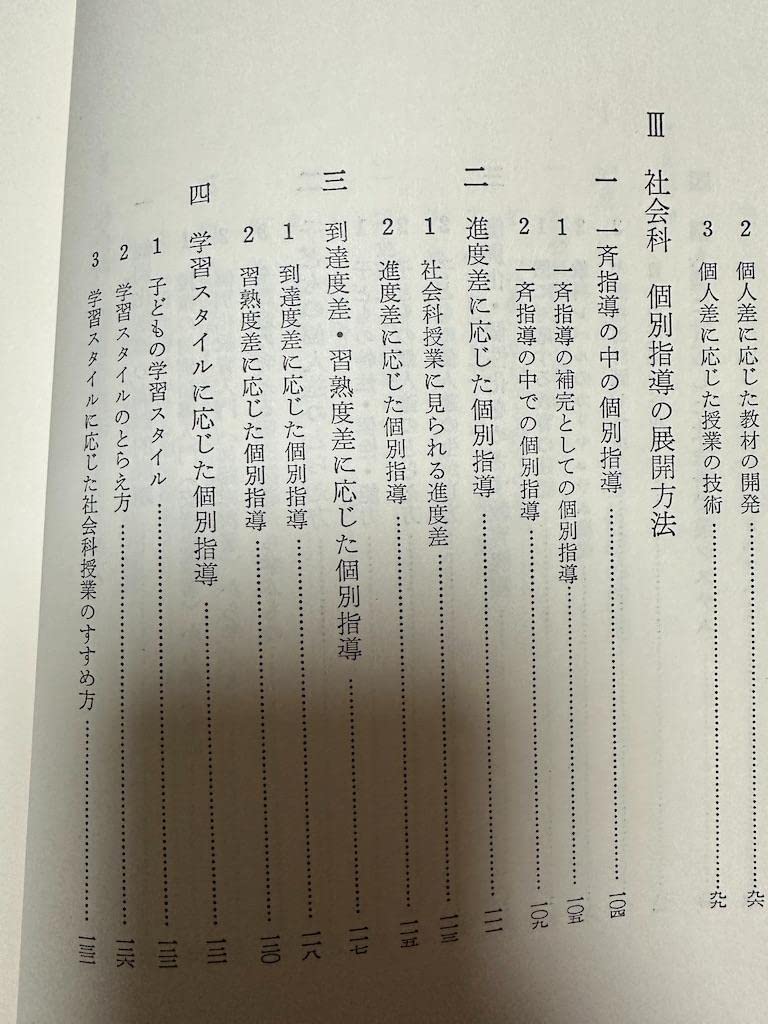 2 個人差に応じた教材の開発……九六
3 個人差に応じた授業の技術……九九
Ⅲ 社会科 個別指導の展開方法
一 一斉指導の中の個別指導……一〇四
1 一斉指導の補完としての個別指導……一〇五
2 一斉指導の中での個別指導……一〇九
二 進度差に応じた個別指導……一一一
1 社会科授業に見られる進度差……一一三
2 進度差に応じた個別指導……一一五
三 到達度差・習熟度差に応じた個別指導……一一七
1 到達度差に応じた個別指導……一一八
2 習熟度差に応じた個別指導……一二〇
四 学習スタイルに応じた個別指導……
1 子どもの学習スタイル……
2 学習スタイルのとらえ方……一二六
3 学習スタイルに応じた社会科授業のすすめ方……